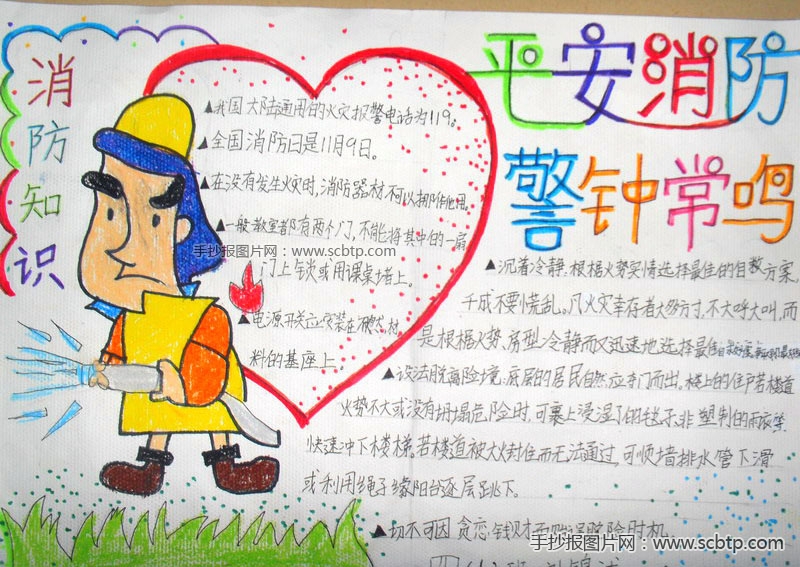 消防知识
平安消防
警钟常鸣
▲我国大陆通用的火灾报警电话为119。
▲全国消防日是11月9日。
▲在没有发生火灾时,消防器材不可以挪作他用。
▲一般教室都有两个门,不能将其中的一扇
门上锁或用课桌堵上。
▲电源开关应安装在不燃材
料的基座上。
手抄报图片网:www.scbtp.com
▲沉着冷静.根据火势实情选择最佳的自救方案,
千成不要慌乱。凡火灾幸存者大多方寸,不大呼大叫,而
是根据火势.房型冷静而又迅速地选择最佳
▲设法脱离险境.底层的居民自然应夺门而出.楼上的住户若楼道
火势不大或没有坍塌危险时,可裹上浸湿了的毯子.非塑制的雨衣等
快速冲下楼梯.若楼道被大火封住而无法通过,可顺墙排水管下滑
或利用绳子缘阳台逐层跳下。
▲切不可因贪恋钱财而贻误脱险时机.
手抄报图片网:www.scbtp.com